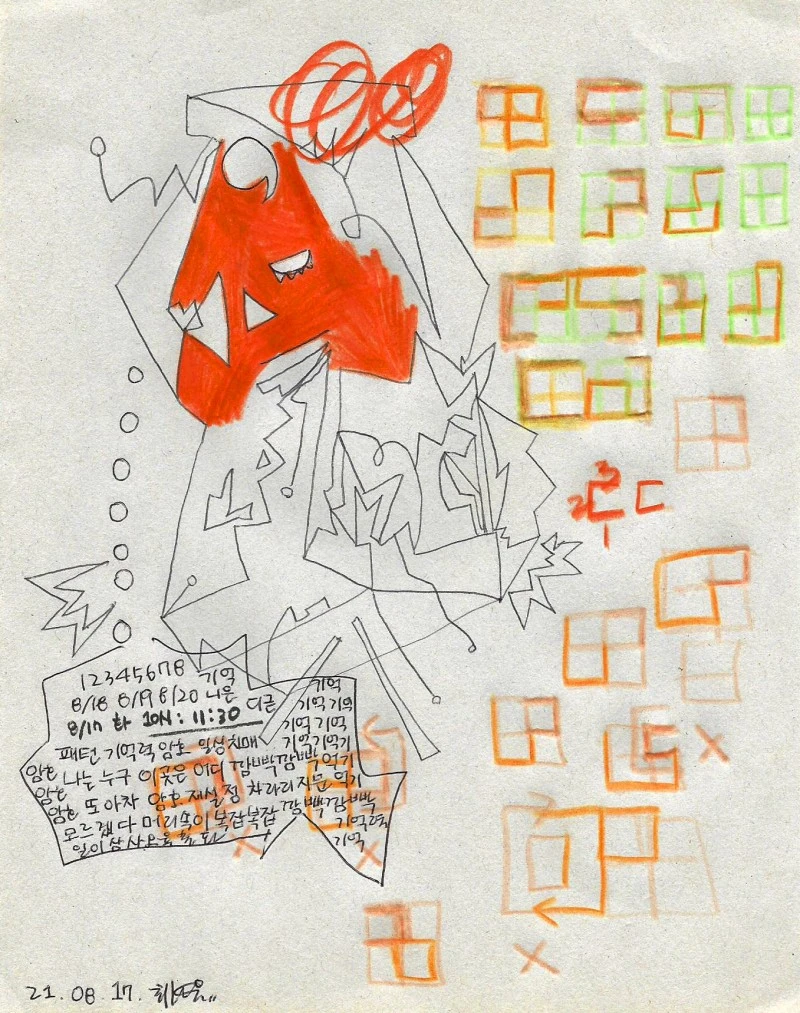 3
2 ㄷ ㄷ
1
12345678 기억 기억
8/18 8/19 8/20 니은 디귿 기억 기억
8/17 화 10시: 11:30 기억 기억
패턴 기억력 암호 일상 치매 기억기억기
암호 나는 누구 이곳은 어디 깜빡깜빡 억기
암호 또 아차 암호 재설정 차라리 지문 억기
암호 모르겠다 머리속이 복잡복잡 깜빡깜빡
일이삼사오육칠 기억력
기억
21.08.17.